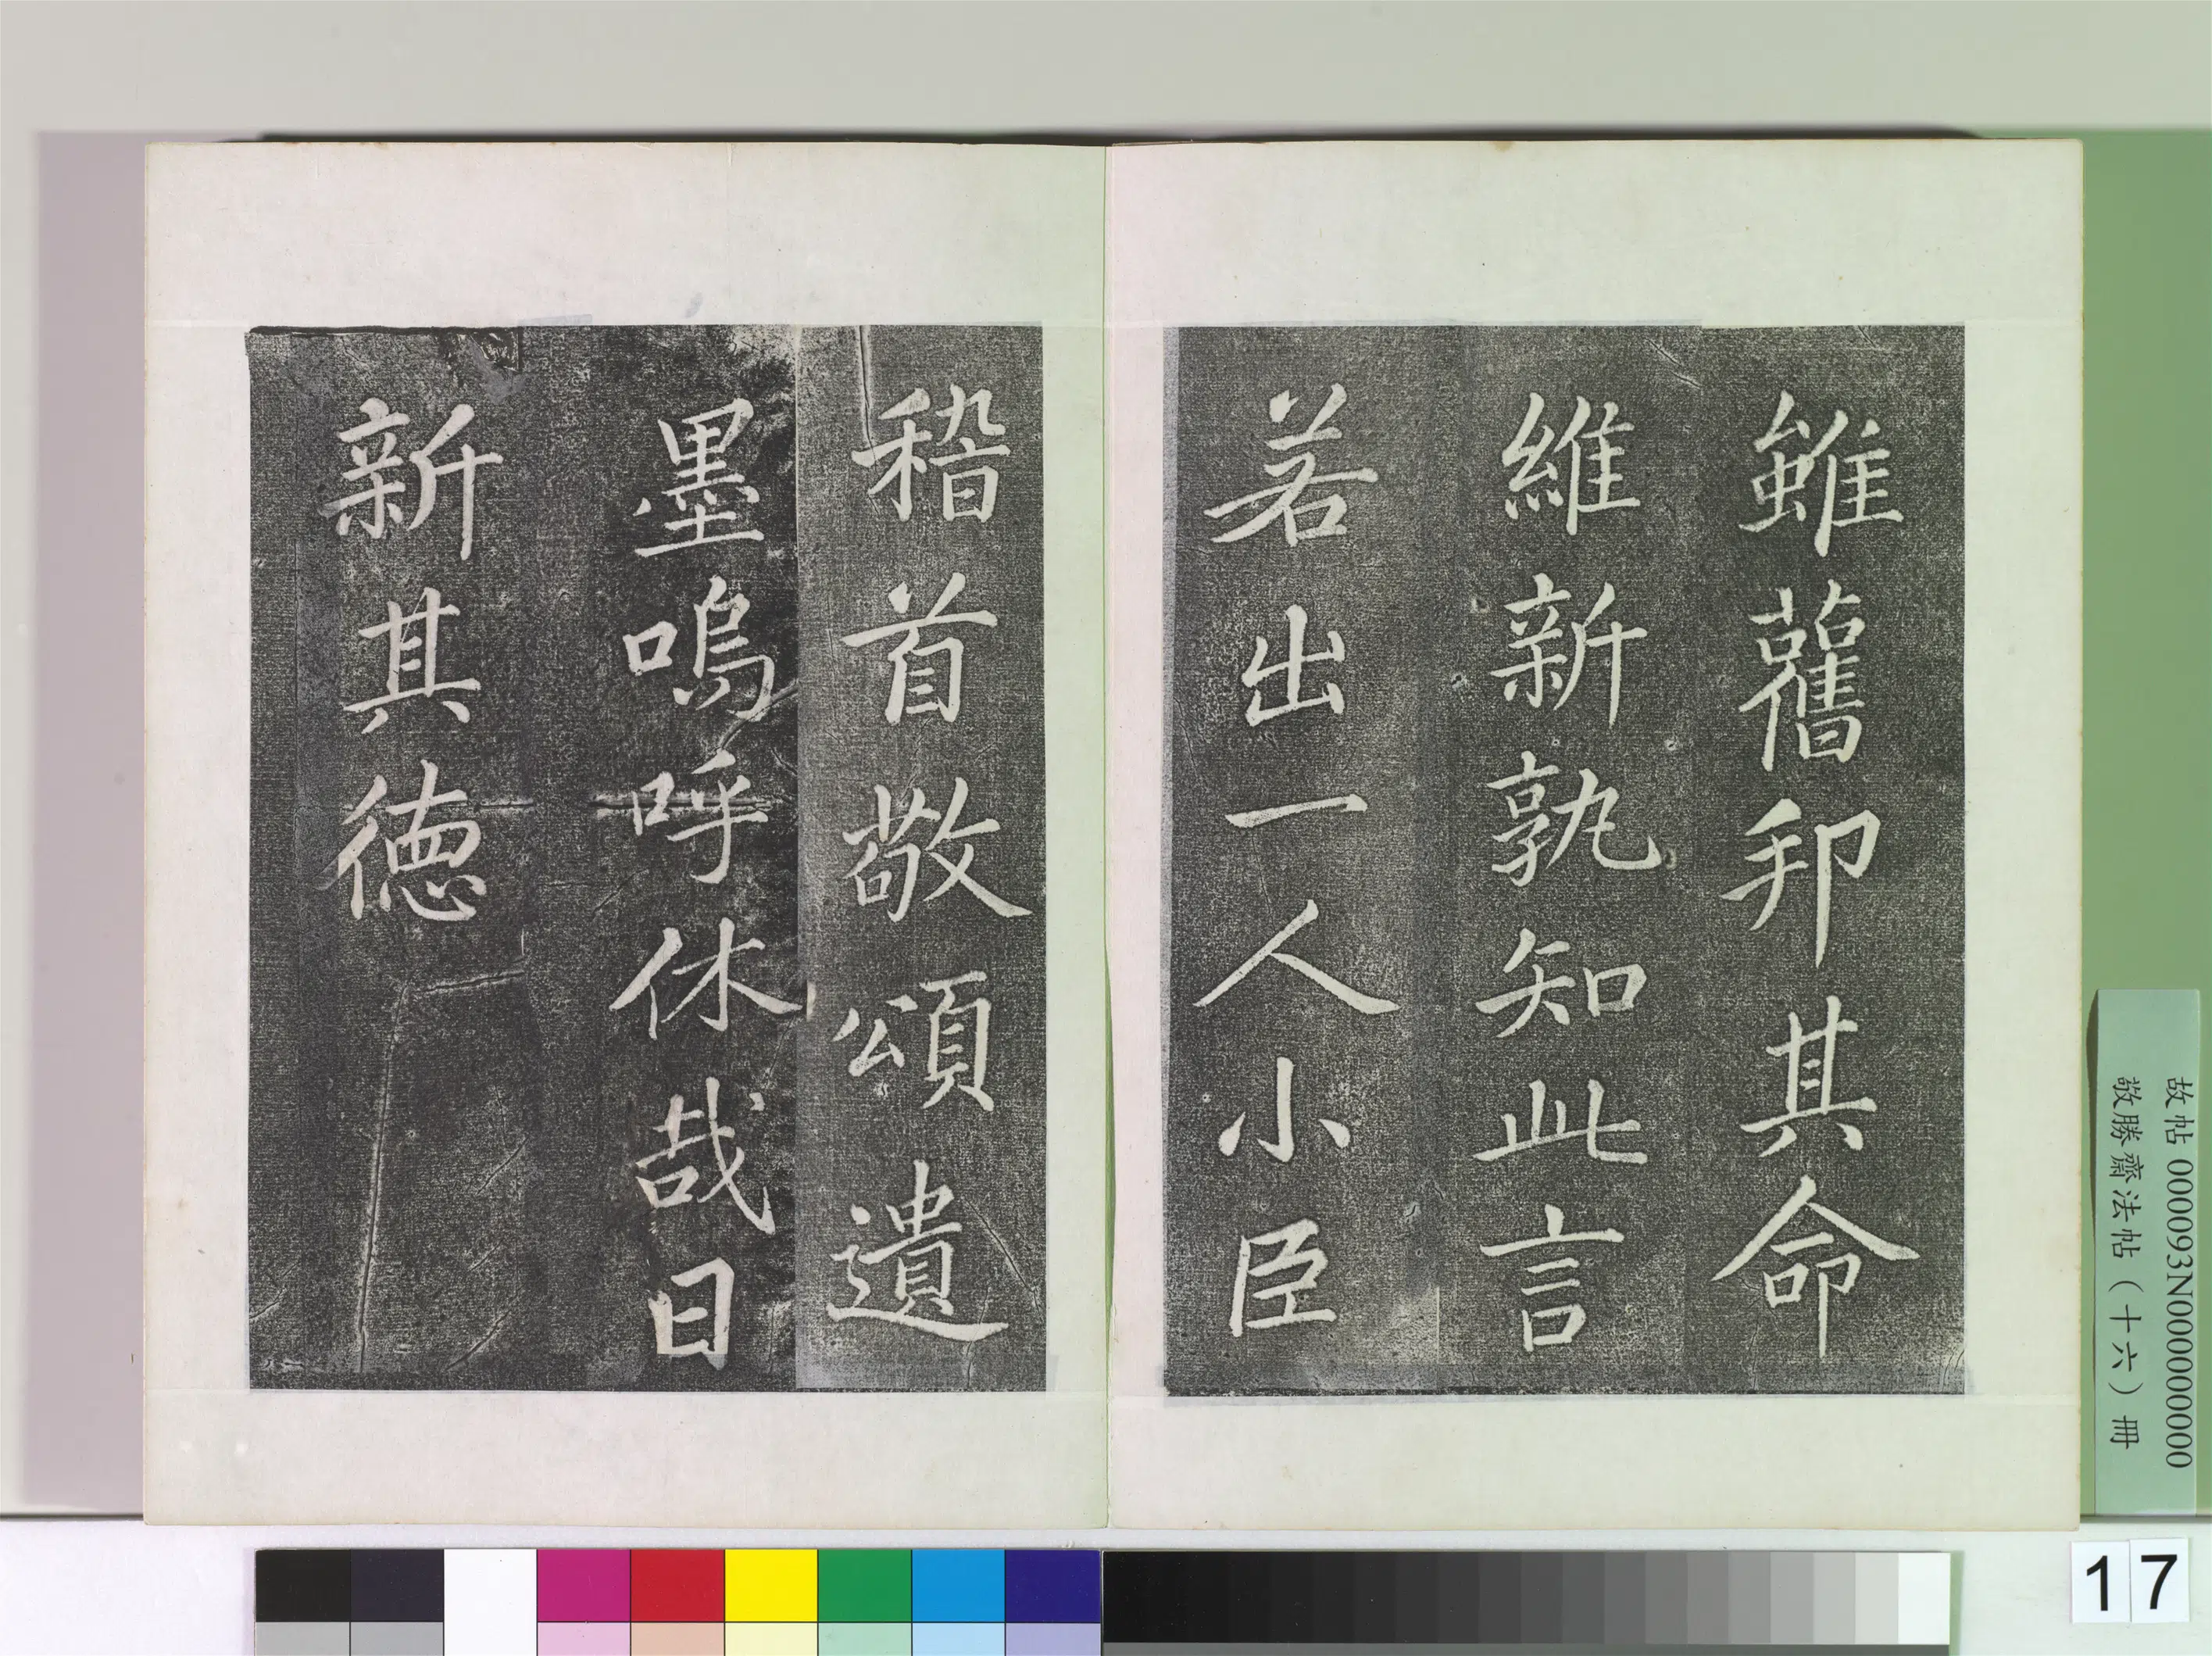 雖舊邦其命
維新孰知此言
若出一人小臣
稽首敬頌遺
墨嗚呼休哉日
新其德
故帖 000093N000000000
敬勝齋法帖(十六)冊
17